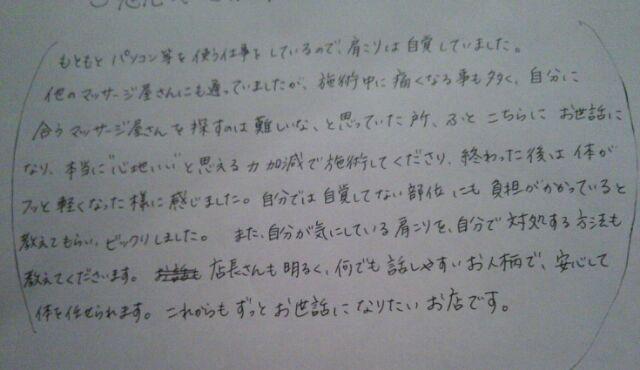 もともと パソコン等を使う仕事をしているので、肩こりは自覚していました。
他のマッサージ屋さんにも通っていましたが、施術中に痛くなる事も多く、自分に
合うマッサージ屋さんを探すのは難しいな、と思っていた所、ふと こちらに お世話に
なり、本当に"心地いい"と思える力加減で施術してくださり、終わった後は 体が
フッと軽くなった様に感じました。自分では自覚してない部位にも負担がかかっていると
教えてもらい、ビックリしました。 また、自分が気にしている肩こりを、自分で対処する方法も
教えてくださいます。 店長さんも明るく、何でも話しやすいお人柄で、安心して
体を任せられます。これからもずっとお世話になりたいお店です。